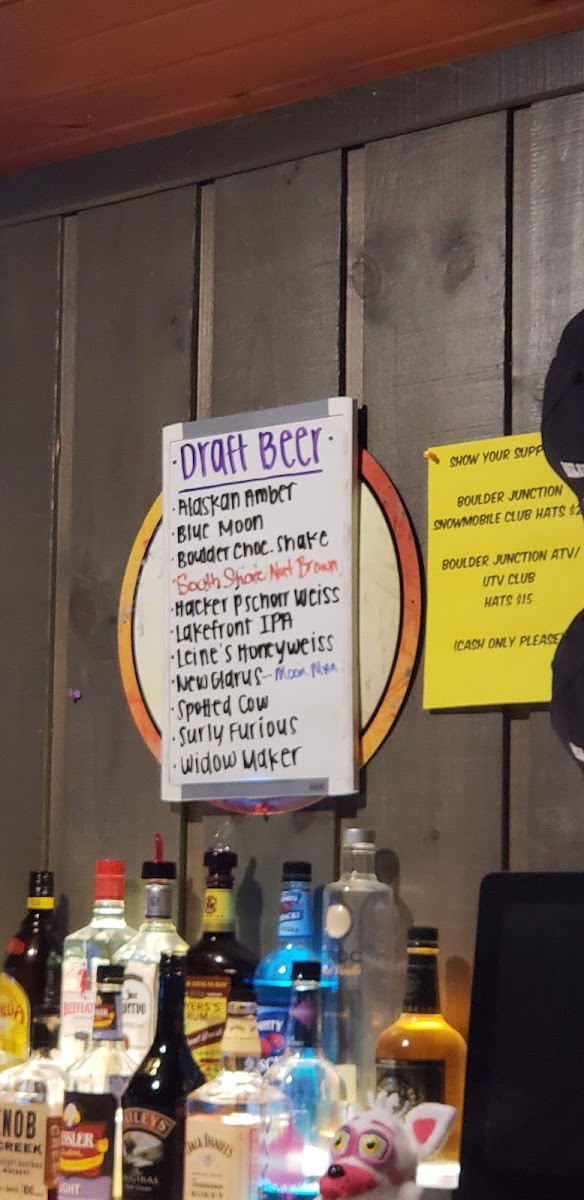 · Draft Beer ·
· Alaskan Amber
· Blue Moon
· Boulder Choc. Shake
· South Shore Nut Brown
· Hacker Pschorr Weiss
· Lakefront IPA
· Leine's Honeyweiss
· New Glarus - Moon Man
· Spotted Cow
· Surly Furious
· Widow Maker
SHOW YOUR SUPP
BOULDER JUNCTION
SNOWMOBILE CLUB HATS $2
BOULDER JUNCTION ATV/
UTV CLUB
HATS $15
(CASH ONLY PLEASE
BEEFEAT
YERS'S
RUM
KNOB
CREEK
SSLER
IGHT
ORIGINAL
JACK DANIEL'S
HONEY